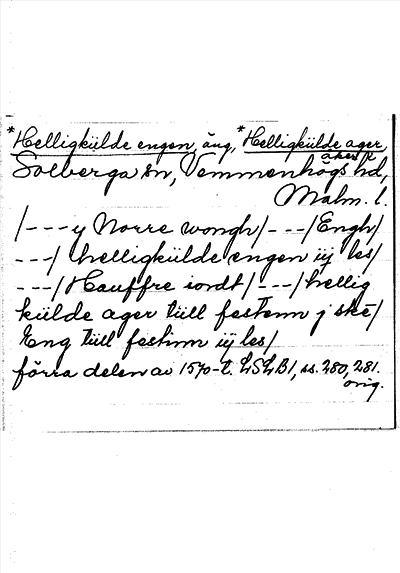 *Helligkülde engen, äng, *Helligkülde ager, åker
Solberga sn, Vemmenhögs hd,
Malm. l.
/---y Norre wongh/---/Engh/
---/ helligkülde engen iij les/
---/Hauffre iordt/---/hellig
külde ager tüll festenn j ske/
Eng tüll festinn iij les/
förra delen av 1570-t. LSLB1, ss. 280, 281.
orig.